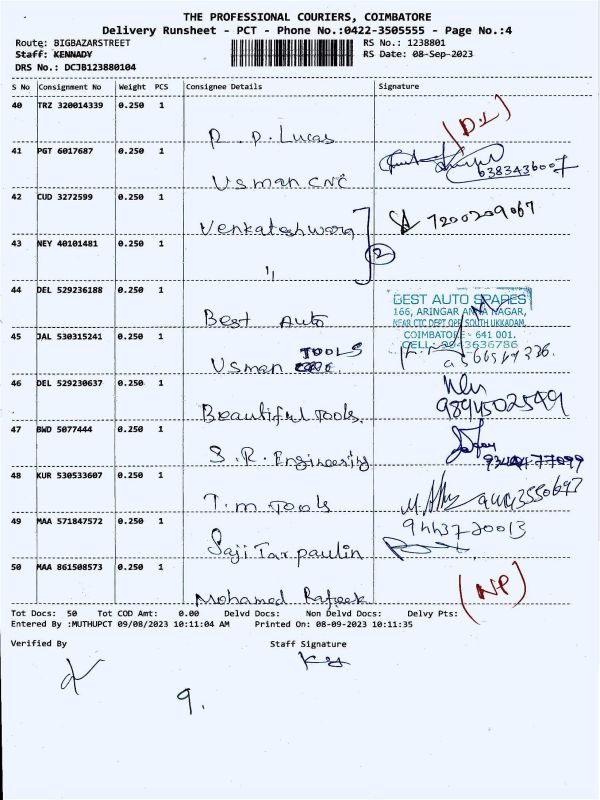 THE PROFESSIONAL COURIERS, COIMBATORE
Delivery Runsheet - PCT - Phone No.:0422-3505555 - Page No.:4
Route: BIGBAZARSTREET RS No.: 1238801
Staff: KENNADY RS Date: 08-Sep-2023
DRS No.: DCJB123880104
S No Consignment No Weight PCS Consignee Details Signature
40 TRZ 320014339 0.250 1
P. P. Lucas (D.L)
41 PGT 6017687 0.250 1
Usman CNC 6383436007
42 CUD 3272599 0.250 1
Venkateshwara 7200209067
43 NEY 40101481 0.250 1
" 2
44 DEL 529236188 0.250 1
Best Auto
BEST AUTO SPARES
166, ARINGAR ANNA NAGAR,
NEAR CTC DEPT OPP SOUTH UKKADAM,
COIMBATORE - 641 001.
45 JAL 530315241 0.250 1
Usman TOOLS
46 DEL 529230637 0.250 1
Beautiful Tools. 9894502549
47 BWD 5077444 0.250 1
S.R. Engineering
48 KUR 530533607 0.250 1
T.m Tools
49 MAA 571847572 0.250 1
Saji Tarpaulin
50 MAA 861508573 0.250 1
Mohamed Rafeek (NP)
Tot Docs: 50 Tot COD Amt: 0.00 Delvd Docs: Non Delvd Docs: Delvy Pts:
Entered By :MUTHUPCT 09/08/2023 10:11:04 AM Printed On: 08-09-2023 10:11:35
Verified By Staff Signature
9.